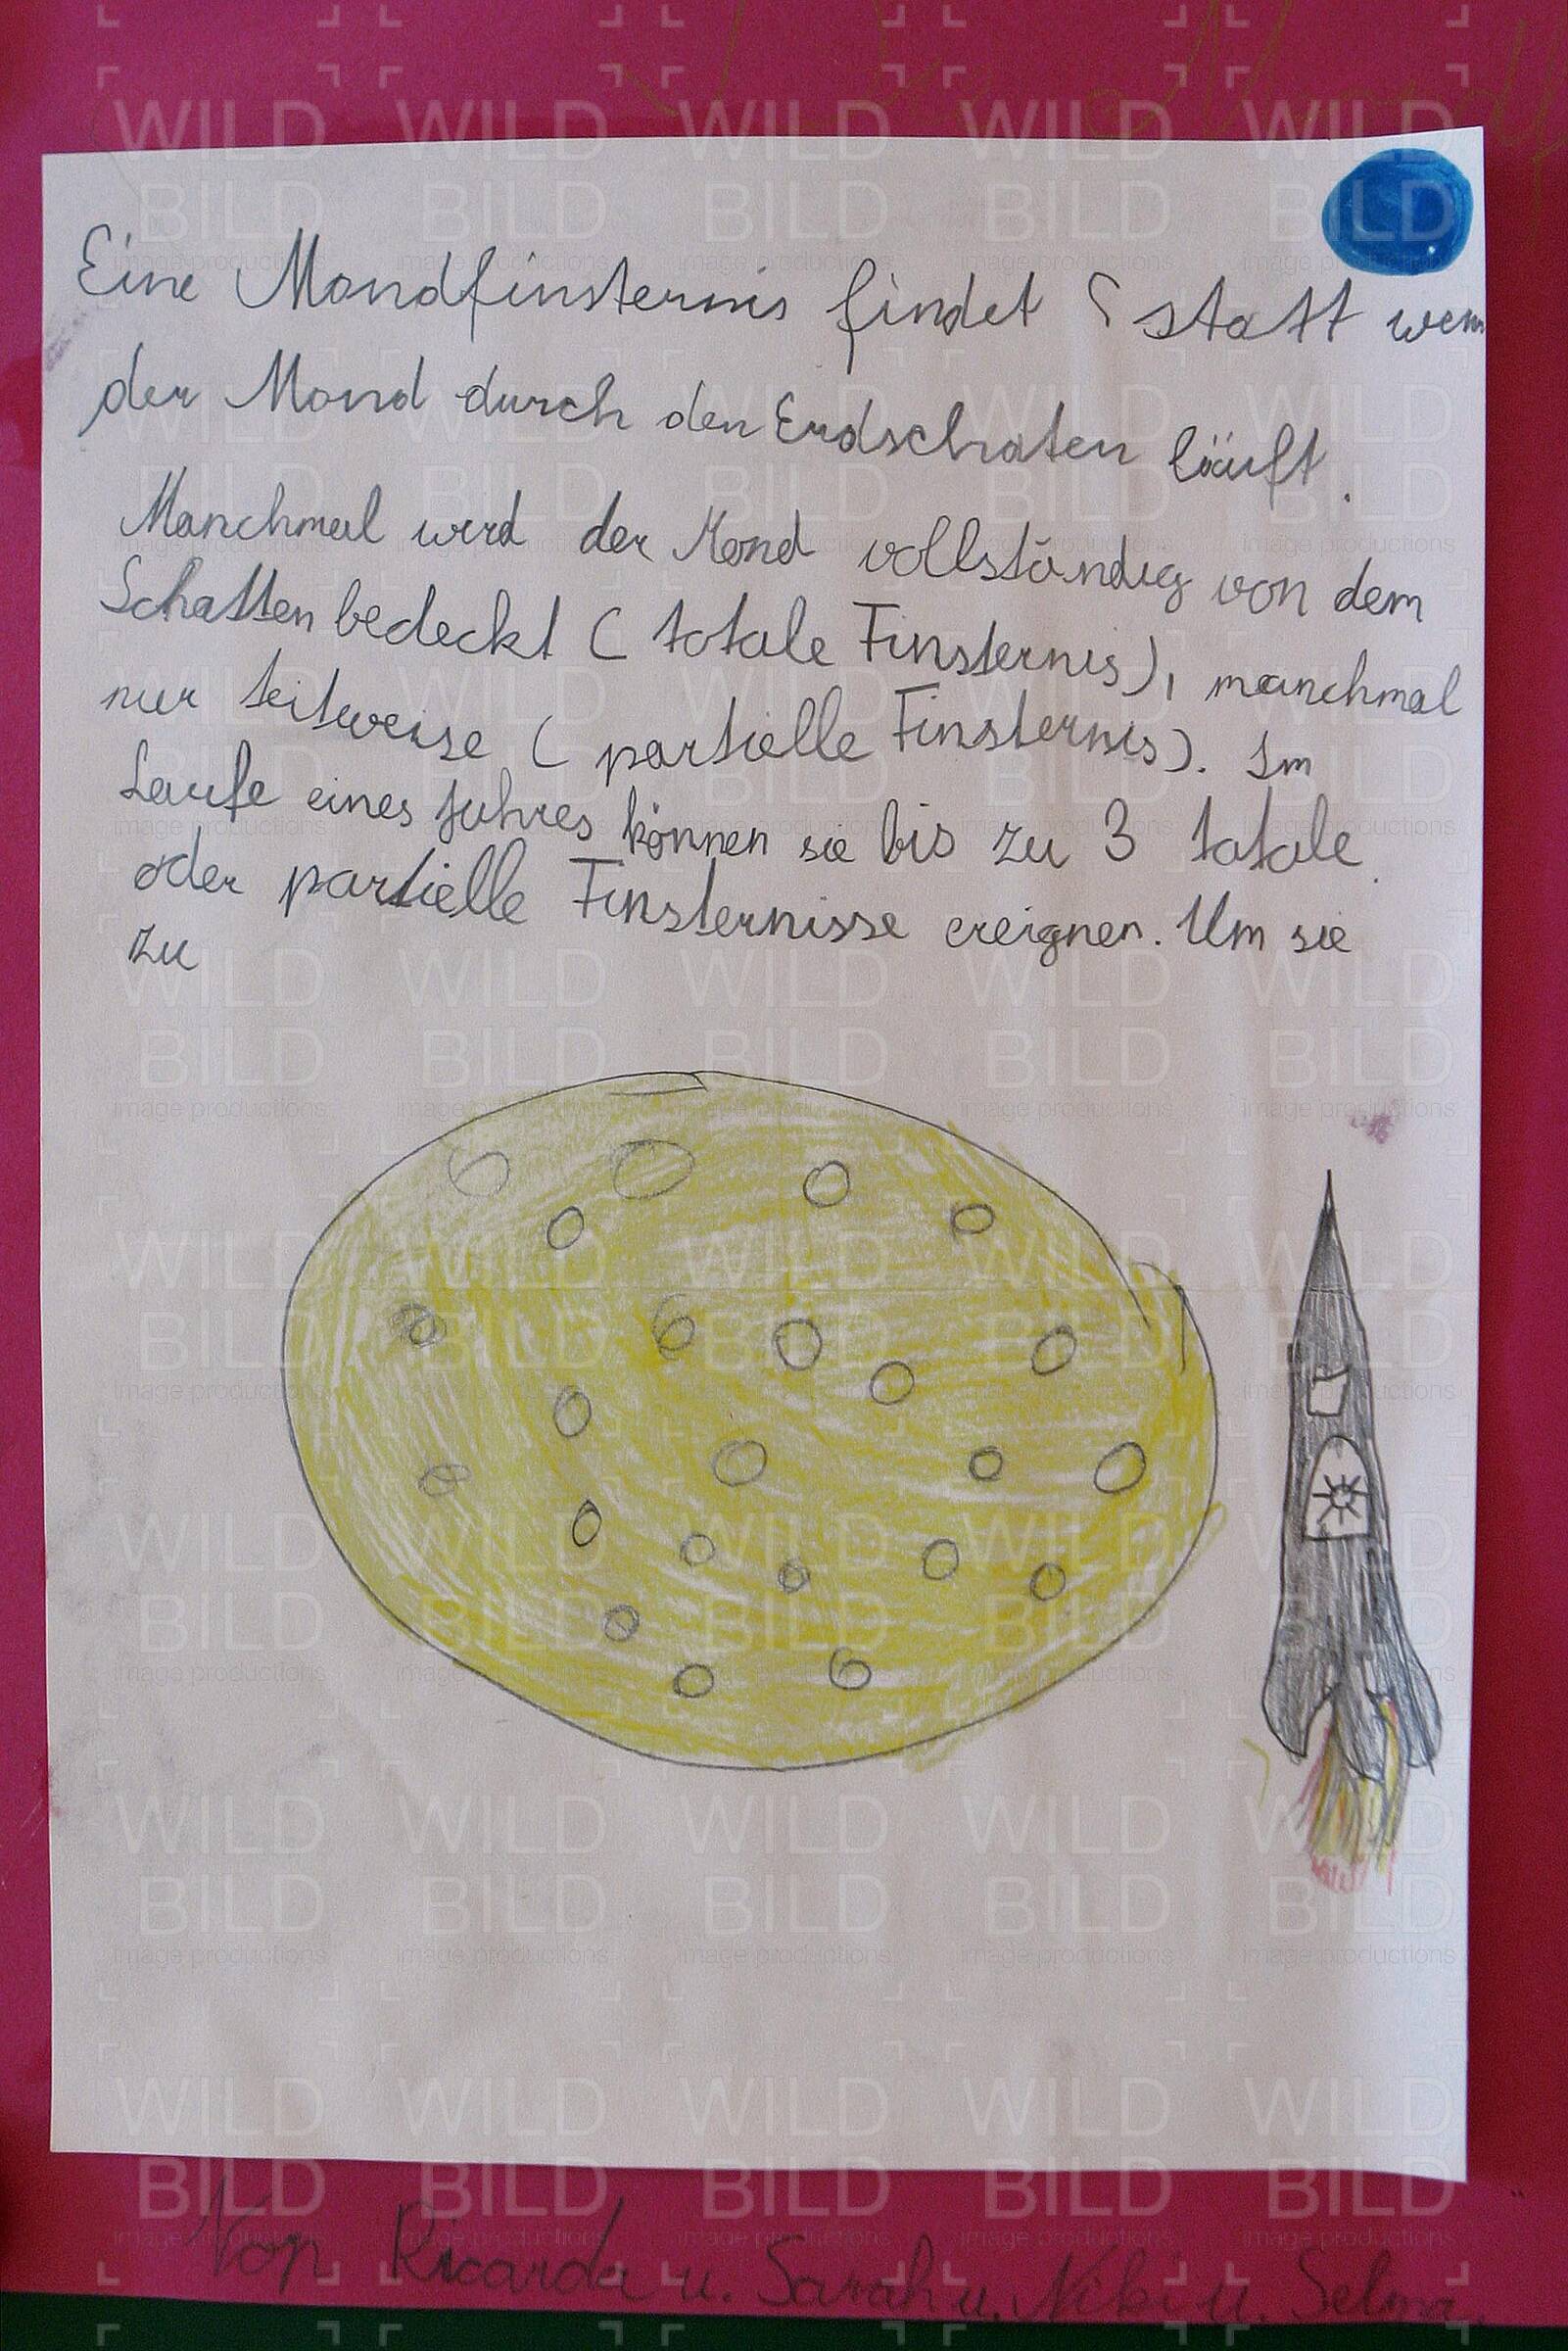 Eine Mondfinsternis findet statt wenn
der Mond durch den Erdschaten läuft.
Manchmal wird der Mond vollständig von dem
Schatten bedeckt (totale Finsternis), manchmal
nur teilweise (partielle Finsternis). Im
Laufe eines Jahres können sie bis zu 3 totale
oder partielle Finsternisse ereignen. Um sie
zu
Von Ricarda u. Sarah u. Niki u. Selma.
WILD
BILD
image productions